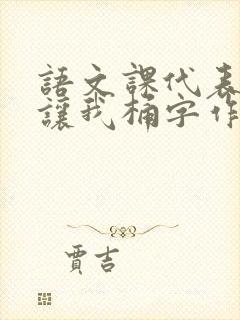 語文課代表
讓我桶字作
賈吉